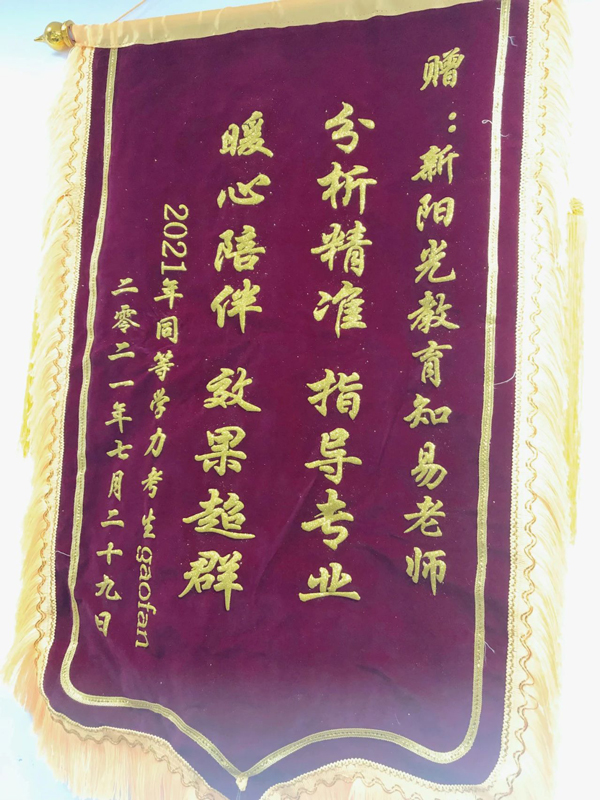 赠：新阳光教育知易老师
分析精准 指导专业
暖心陪伴 效果超群
2021年同等学力考生gaofan
二零二一年七月二十九日